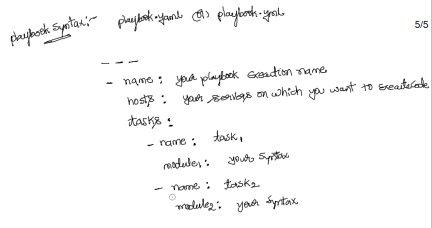 playbook syntax:- playbook.yaml (or) playbook.yml
5/5
---
- name: your playbook Execution name
hosts: your servers on which you want to execute code
tasks:
- name: task1
module1: your syntax
- name: task2
module2: your syntax